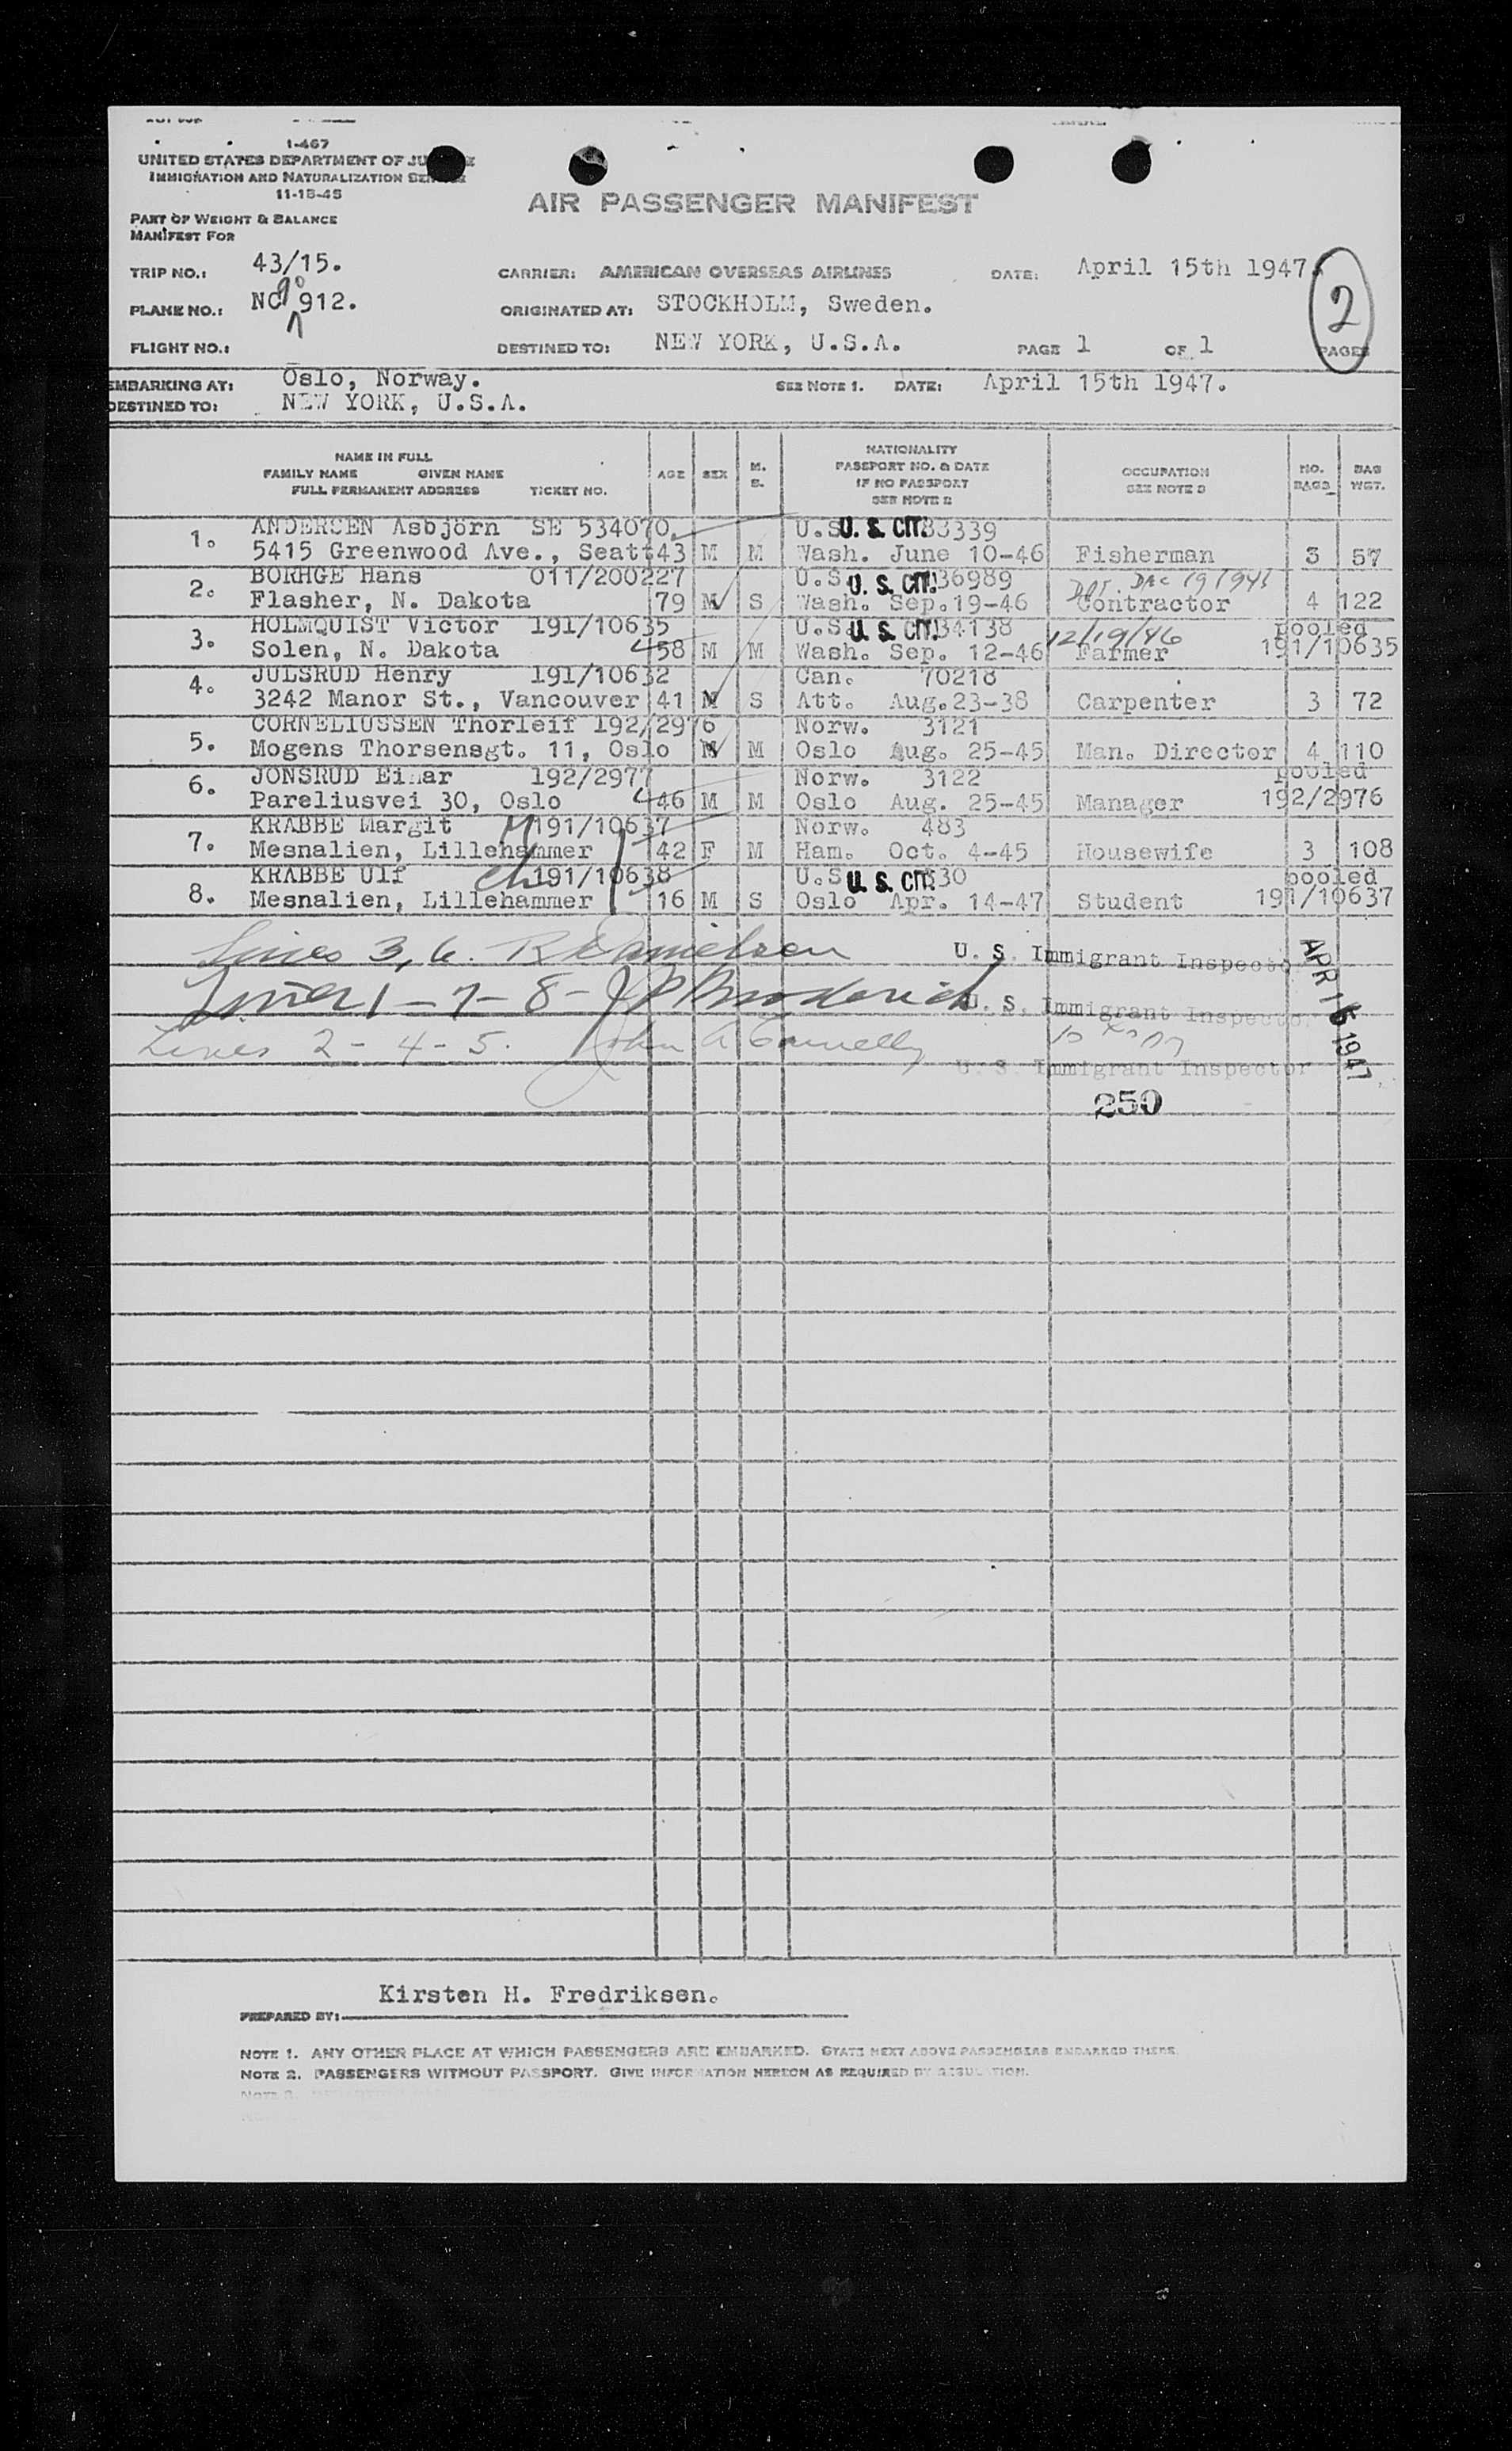 1-467
UNITED STATES DEPARTMENT OF
IMMIGRATION AND NATURALIZATION
11-18-45
AIR PASSENGER MANIFEST
PART OF WEIGHT & BALANCE
MANIFEST FOR
TRIP NO.: 43/15. CARRIER: AMERICAN OVERSEAS AIRLINES DATE: April 15th 1947.
PLANE NO.: NC 90 912. ORIGINATED AT: STOCKHOLM, Sweden. 2
FLIGHT NO.: DESTINED TO: NEW YORK, U.S.A. PAGE 1 OF 1 PAGES
EMBARKING AT: Oslo, Norway. SEE NOTE 1. DATE: April 15th 1947.
DESTINED TO: NEW YORK, U.S.A.
NAME IN FULL
FAMILY NAME GIVEN NAME
FULL PERMANENT ADDRESS TICKET NO. AGE SEX M. S. NATIONALITY PASSPORT NO. & DATE IF NO PASSPORT SEE NOTE 2 OCCUPATION SEE NOTE 3 NO. BAGS BAG WGT.
1. ANDERSEN Asbjörn SE 534070. U.S. U. S. CIT. 33339
5415 Greenwood Ave., Seatt 43 M M Wash. June 10-46 Fisherman 3 57
2. BORHGE Hans 011/200227 U.S. U. S. CIT. 36989 Dec 19 1946
Flasher, N. Dakota 79 M S Wash. Sep. 19-46 Contractor 4 122
3. HOLMQUIST Victor 191/10635 U.S. U. S. CIT. 34138 12/19/46 pooled
Solen, N. Dakota 58 M M Wash. Sep. 12-46 Farmer 191/10635
4. JULSRUD Henry 191/10632 Can. 70218
3242 Manor St., Vancouver 41 M S Att. Aug. 23-38 Carpenter 3 72
5. CORNELIUSSEN Thorleif 192/2976 Norw. 3121
Mogens Thorsensgt. 11, Oslo M M Oslo Aug. 25-45 Man. Director 4 110
6. JONSRUD Einar 192/2977 Norw. 3122 pooled
Pareliusvei 30, Oslo 46 M M Oslo Aug. 25-45 Manager 192/2976
7. KRABBE Margit M 191/10637 Norw. 483
Mesnalien, Lillehammer 42 F M Ham. Oct. 4-45 Housewife 3 108
8. KRABBE Ulf ch 191/10638 U.S. U. S. CIT. 30 pooled
Mesnalien, Lillehammer 16 M S Oslo Apr. 14-47 Student 191/10637
Lines 3, 6. R Danielsen U. S. Immigrant Inspector APR 15 1947
Lines 1-7-8- J P Broderick U. S. Immigrant Inspector
Lines 2-4-5. John A Connelly U. S. Immigrant Inspector
250
Kirsten H. Fredriksen.
PREPARED BY:
NOTE 1. ANY OTHER PLACE AT WHICH PASSENGERS ARE EMBARKED. STATE NEXT ABOVE PASSENGERS EMBARKED THERE.
NOTE 2. PASSENGERS WITHOUT PASSPORT. GIVE INFORMATION HEREON AS REQUIRED BY REGULATION.